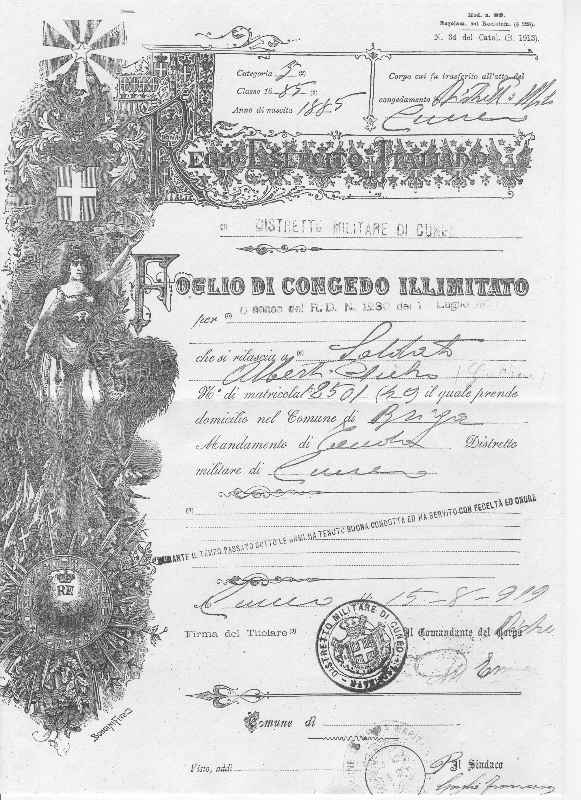 Mod. n. 39.
Regolam. sul Reclutam. (§ 925).
N. 34 del Catal. (R. 1913).
Categoria I (2)
Classe 18 85 (3)
Anno di nascita 1885
Corpo cui fu trasferto all'atto del
congedamento
Cuneo
REGIO ESERCITO ITALIANO
DISTRETTO MILITARE DI CUNEO
FOGLIO DI CONGEDO ILLIMITATO
per (5) a senso del R. D. N. 1280 del 1 Luglio
che si rilascia a (6) Soldato
Alberti Pietro
N.º di matricola 2501 (20) il quale prende
domicilio nel Comune di Briga
Mandamento di Tenda Distretto
militare di Cuneo
DURANTE IL TEMPO PASSATO SOTTO LE ARMI HA TENUTO BUONA CONDOTTA ED HA SERVITO CON FEDELTÀ ED ONORE
Cuneo li 15-8-919
Firma del Titolare
Il Comandante del Corpo
DISTRETTO MILITARE DI CUNEO
RE
Comune di
Visto, addì
Il Sindaco